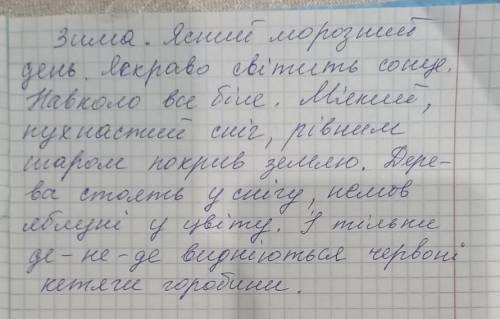 Зима. Ясний морозний
день. Яскраво світить сонце.
Навколо все біле. М'який,
пухнастий сніг, рівним
шаром покрив землю. Дере-
ва стоять у снігу, немов
яблуні у цвіту. І тільки
де-не-де видніються червоні
кетяги горобини.